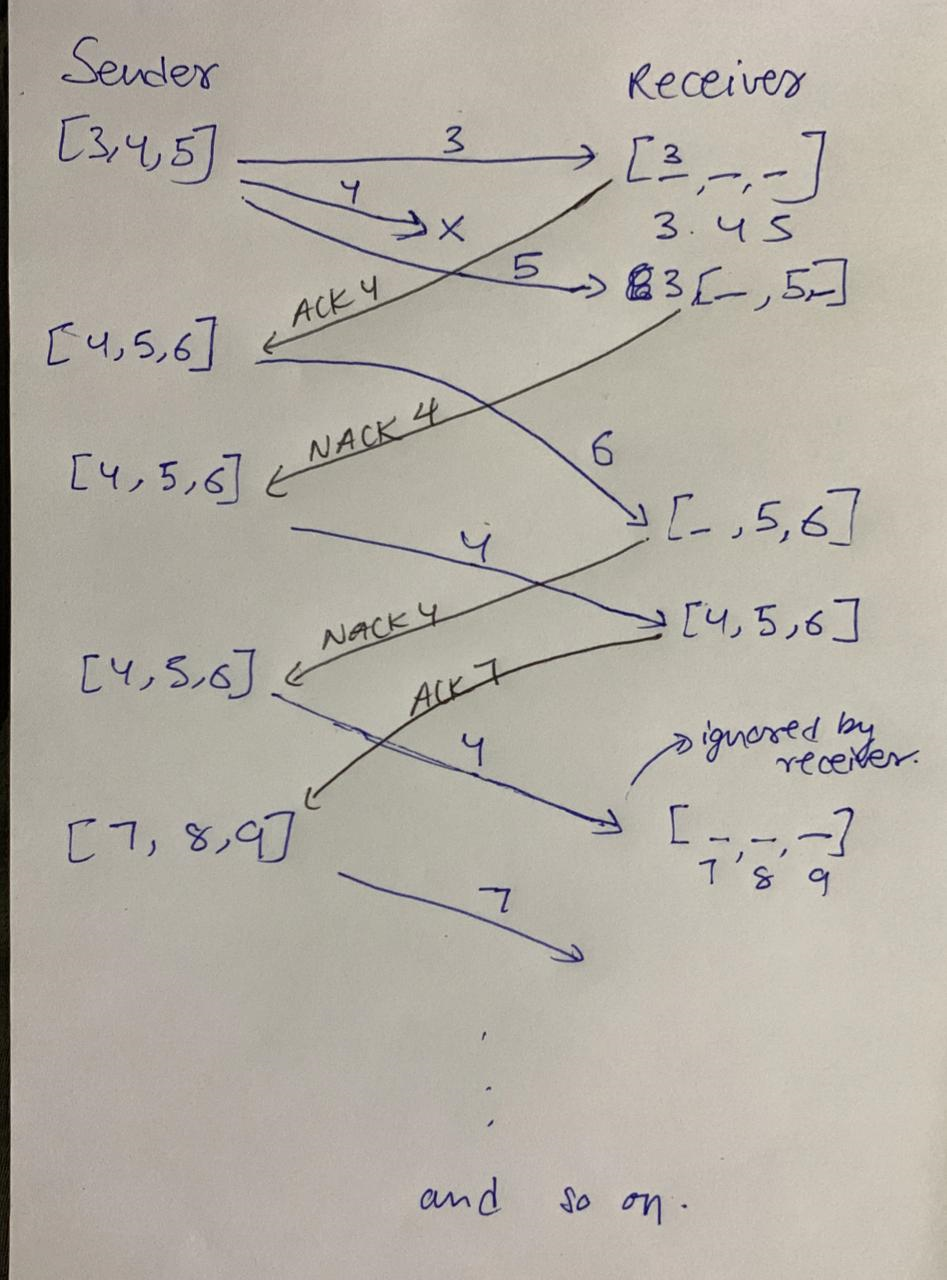 Sender Receiver
[3,4,5] 3 [3,–,–]
4 x 3. 4 5
5 3[–,5,–]
ACK 4
[4,5,6]
NACK 4
[4,5,6] 6
[–,5,6]
4
NACK 4 [4,5,6]
[4,5,6] ACK 7
4 ignored by
receiver.
[7, 8,9] [–,–,–]
7 8 9
7
.
.
.
and so on.